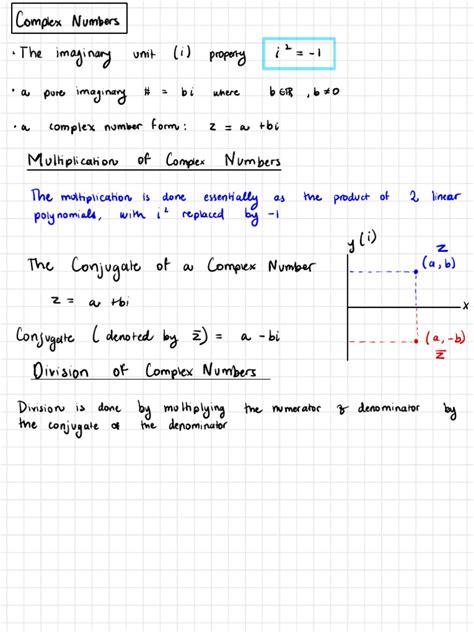 Complex Numbers
• The imaginary unit (i) property i² = -1
• a pure imaginary # = bi where b∈ℝ, b≠0
• a complex number form: z = a +bi
Multiplication of Complex Numbers
The multiplication is done essentially as the product of 2 linear
polynomials, with i² replaced by -1
y(i)
z
(a, b)
The Conjugate of a Complex Number
z = a +bi
x
Conjugate (denoted by z̄) = a -bi
(a, -b)
z̄
Division of Complex Numbers
Division is done by multiplying the numerator & denominator by
the conjugate of the denominator